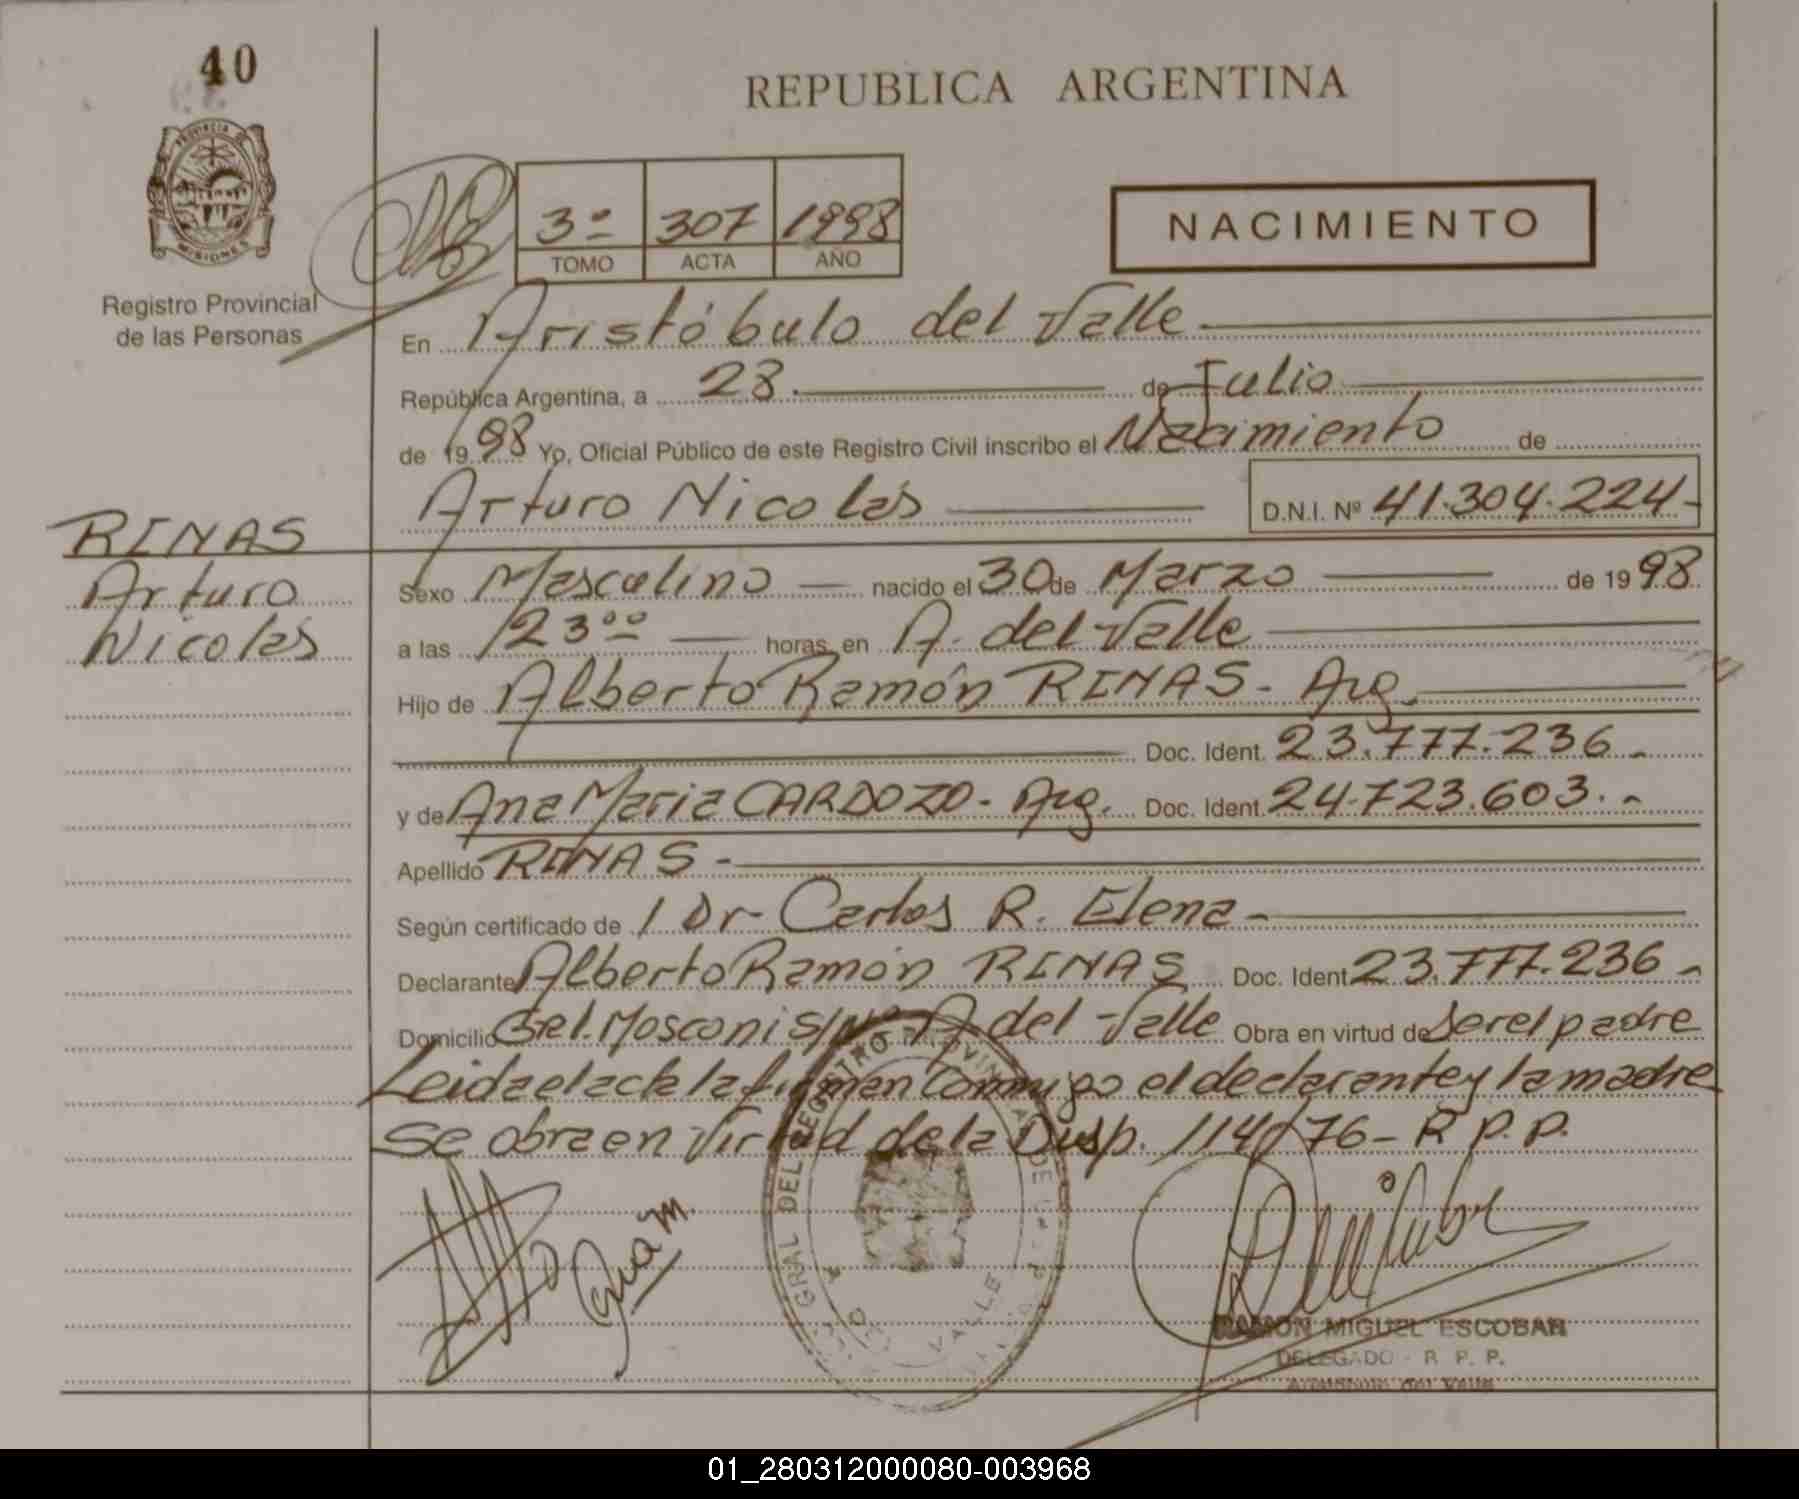 40
REPUBLICA ARGENTINA
PROVINCIA DE
MISIONES
Registro Provincial
de las Personas
3º 307 1998
TOMO ACTA AÑO
NACIMIENTO
En Aristóbulo del Valle
República Argentina, a 28. de Julio
de 1998 Yo, Oficial Público de este Registro Civil inscribo el Nacimiento de
Arturo Nicolás D.N.I. Nº 41.304.224-
RINAS
Arturo
Nicolás
Sexo Masculino nacido el 30 de Marzo de 1998
a las 23ºº horas, en A. del Valle
Hijo de Alberto Ramón RINAS - Arg.
Doc. Ident. 23.777.236.-
y de Ana Maria CARDOZO - Arg. Doc. Ident. 24.723.603.-
Apellido RINAS -
Según certificado de Dr Carlos R. Elena -
Declarante Alberto Ramón RINAS Doc. Ident 23.777.236 -
Domicilio Gel. Mosconi s/Nº A del Valle Obra en virtud de ser el padre
Leida el acta la firman conmigo el declarante y la madre
se obra en virtud de la Disp. 114/76 - R P. P.
RAMON MIGUEL ESCOBAR
DELEGADO - R. P. P.
Aristóbulo del Valle
01_280312000080-003968